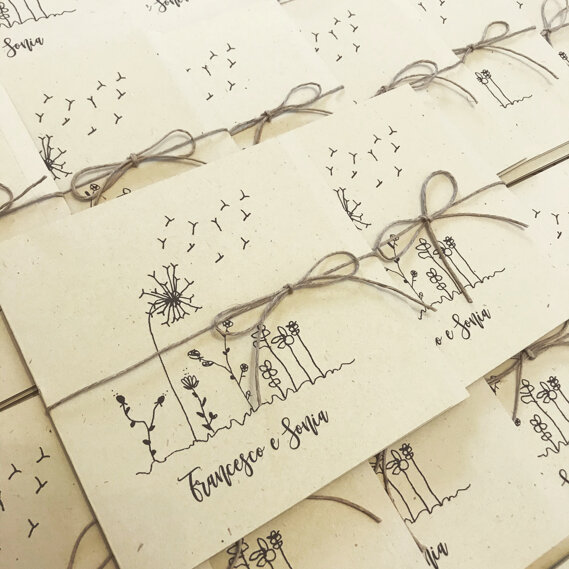 Sonia
Francesco e Sonia
o e Sonia
nia